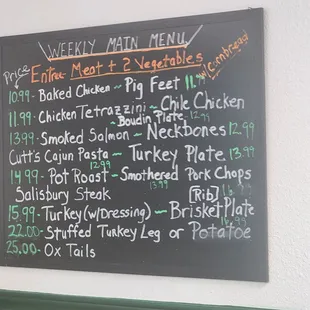 WEEKLY MAIN MENU
Price Entree Meat + 2 Vegetables w/Cornbread
10.99 - Baked Chicken ~ Pig Feet 11.99
11.99 - Chicken Tetrazzini ~ Chile Chicken
~ Boudin Plate 12.99
13.99 - Smoked Salmon ~ Neckbones 12.99
Cutt's Cajun Pasta ~ Turkey Plate 13.99
12.99
14.99 - Pot Roast ~ Smothered Pork Chops
13.99
Salisbury Steak [Rib] 16.99
15.99 - Turkey (w/Dressing) ~ Brisket Plate
16.99
22.00 - Stuffed Turkey Leg or Potatoe
25.00 - Ox Tails